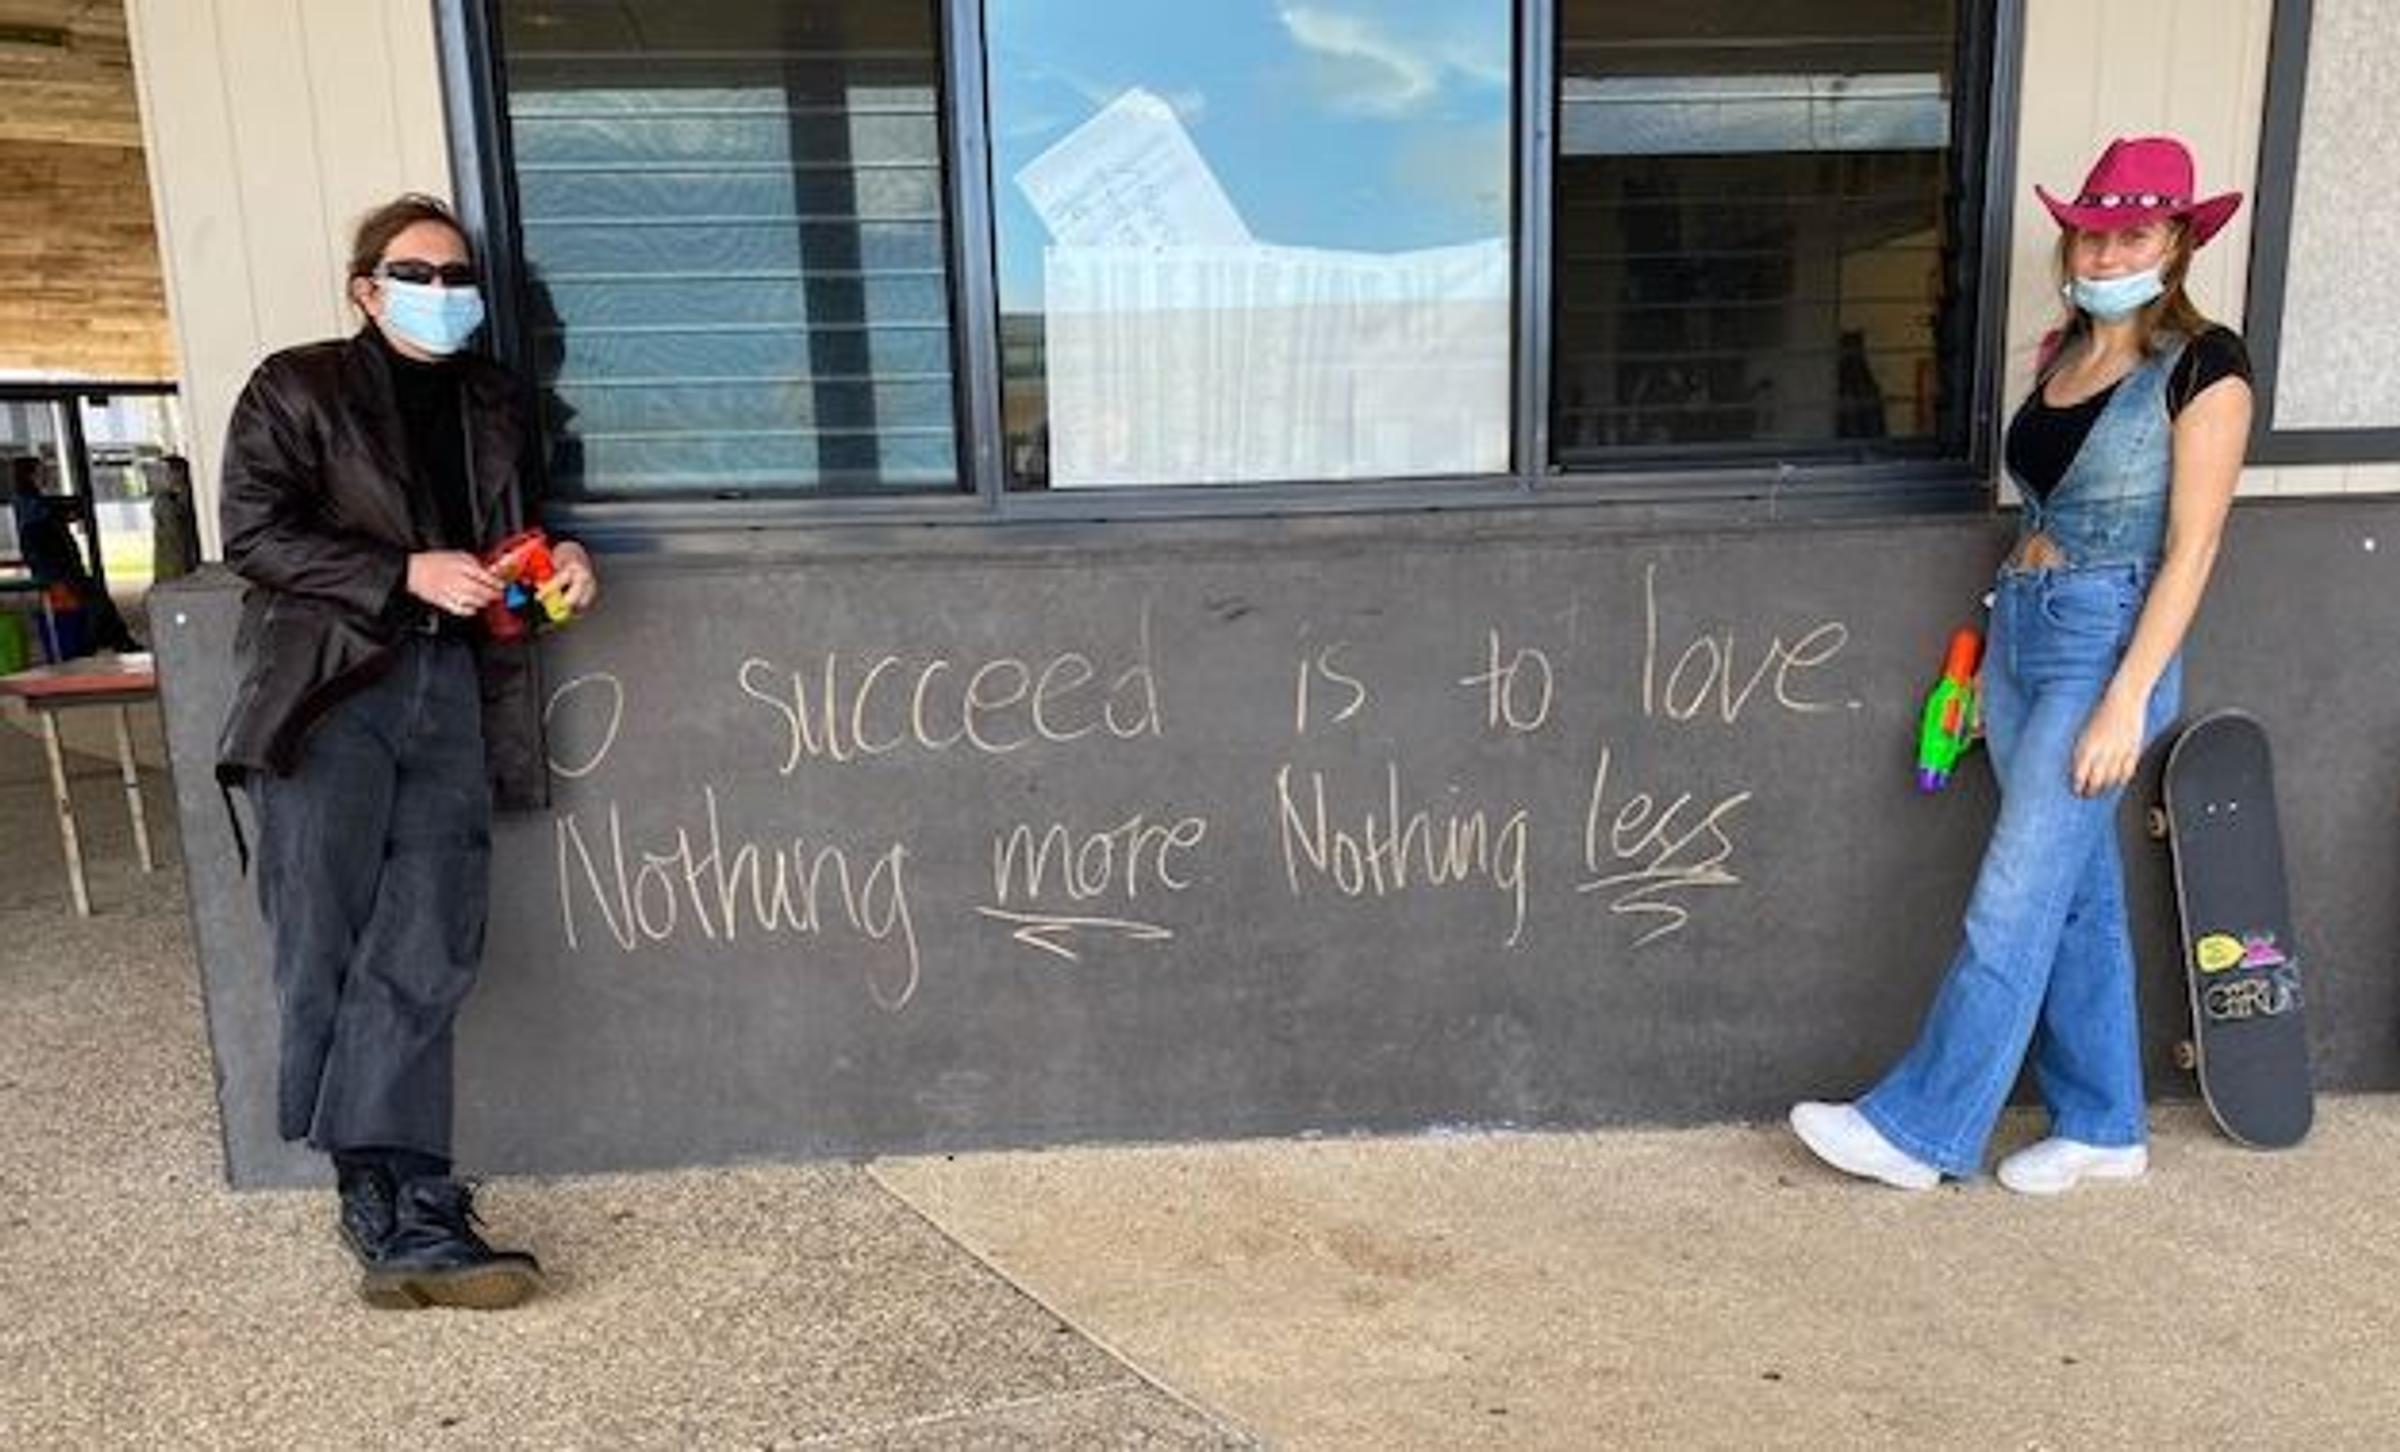 o succeed is to love.
Nothing more Nothing less